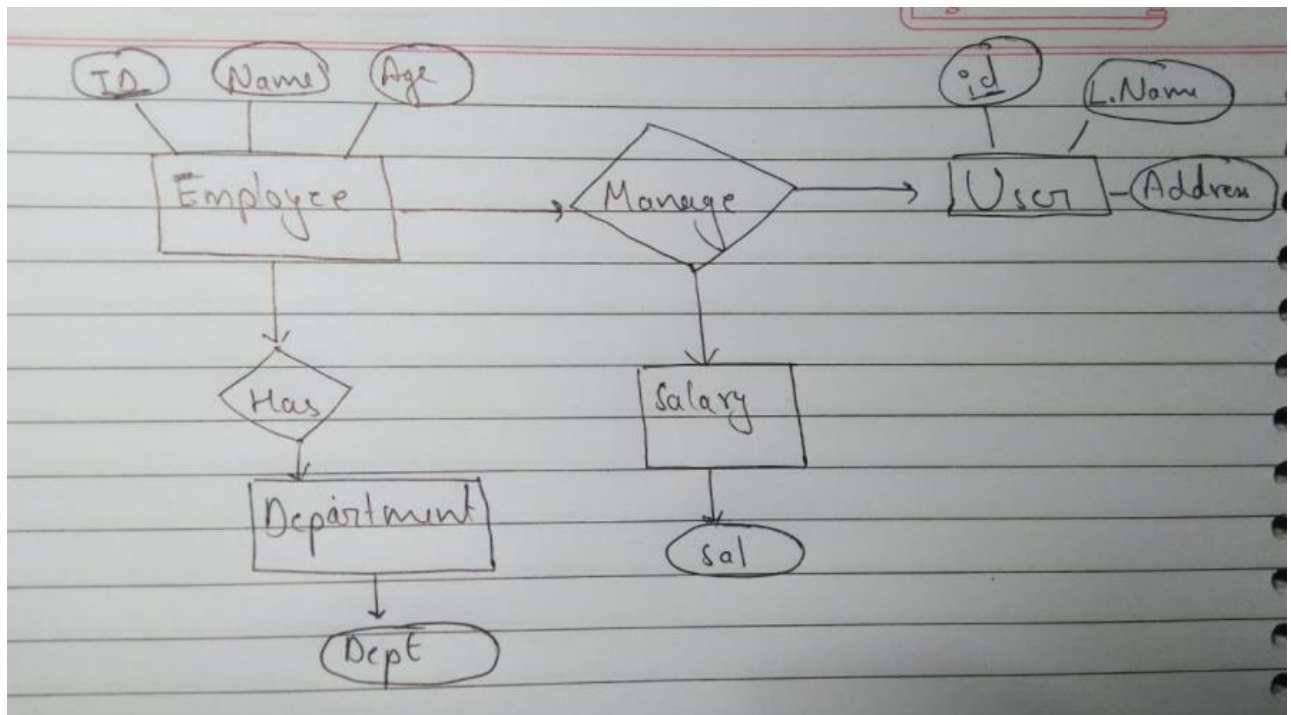 ID Name Age id L.Name
Employee Manage User Address
Has Salary
Department sal
Dept